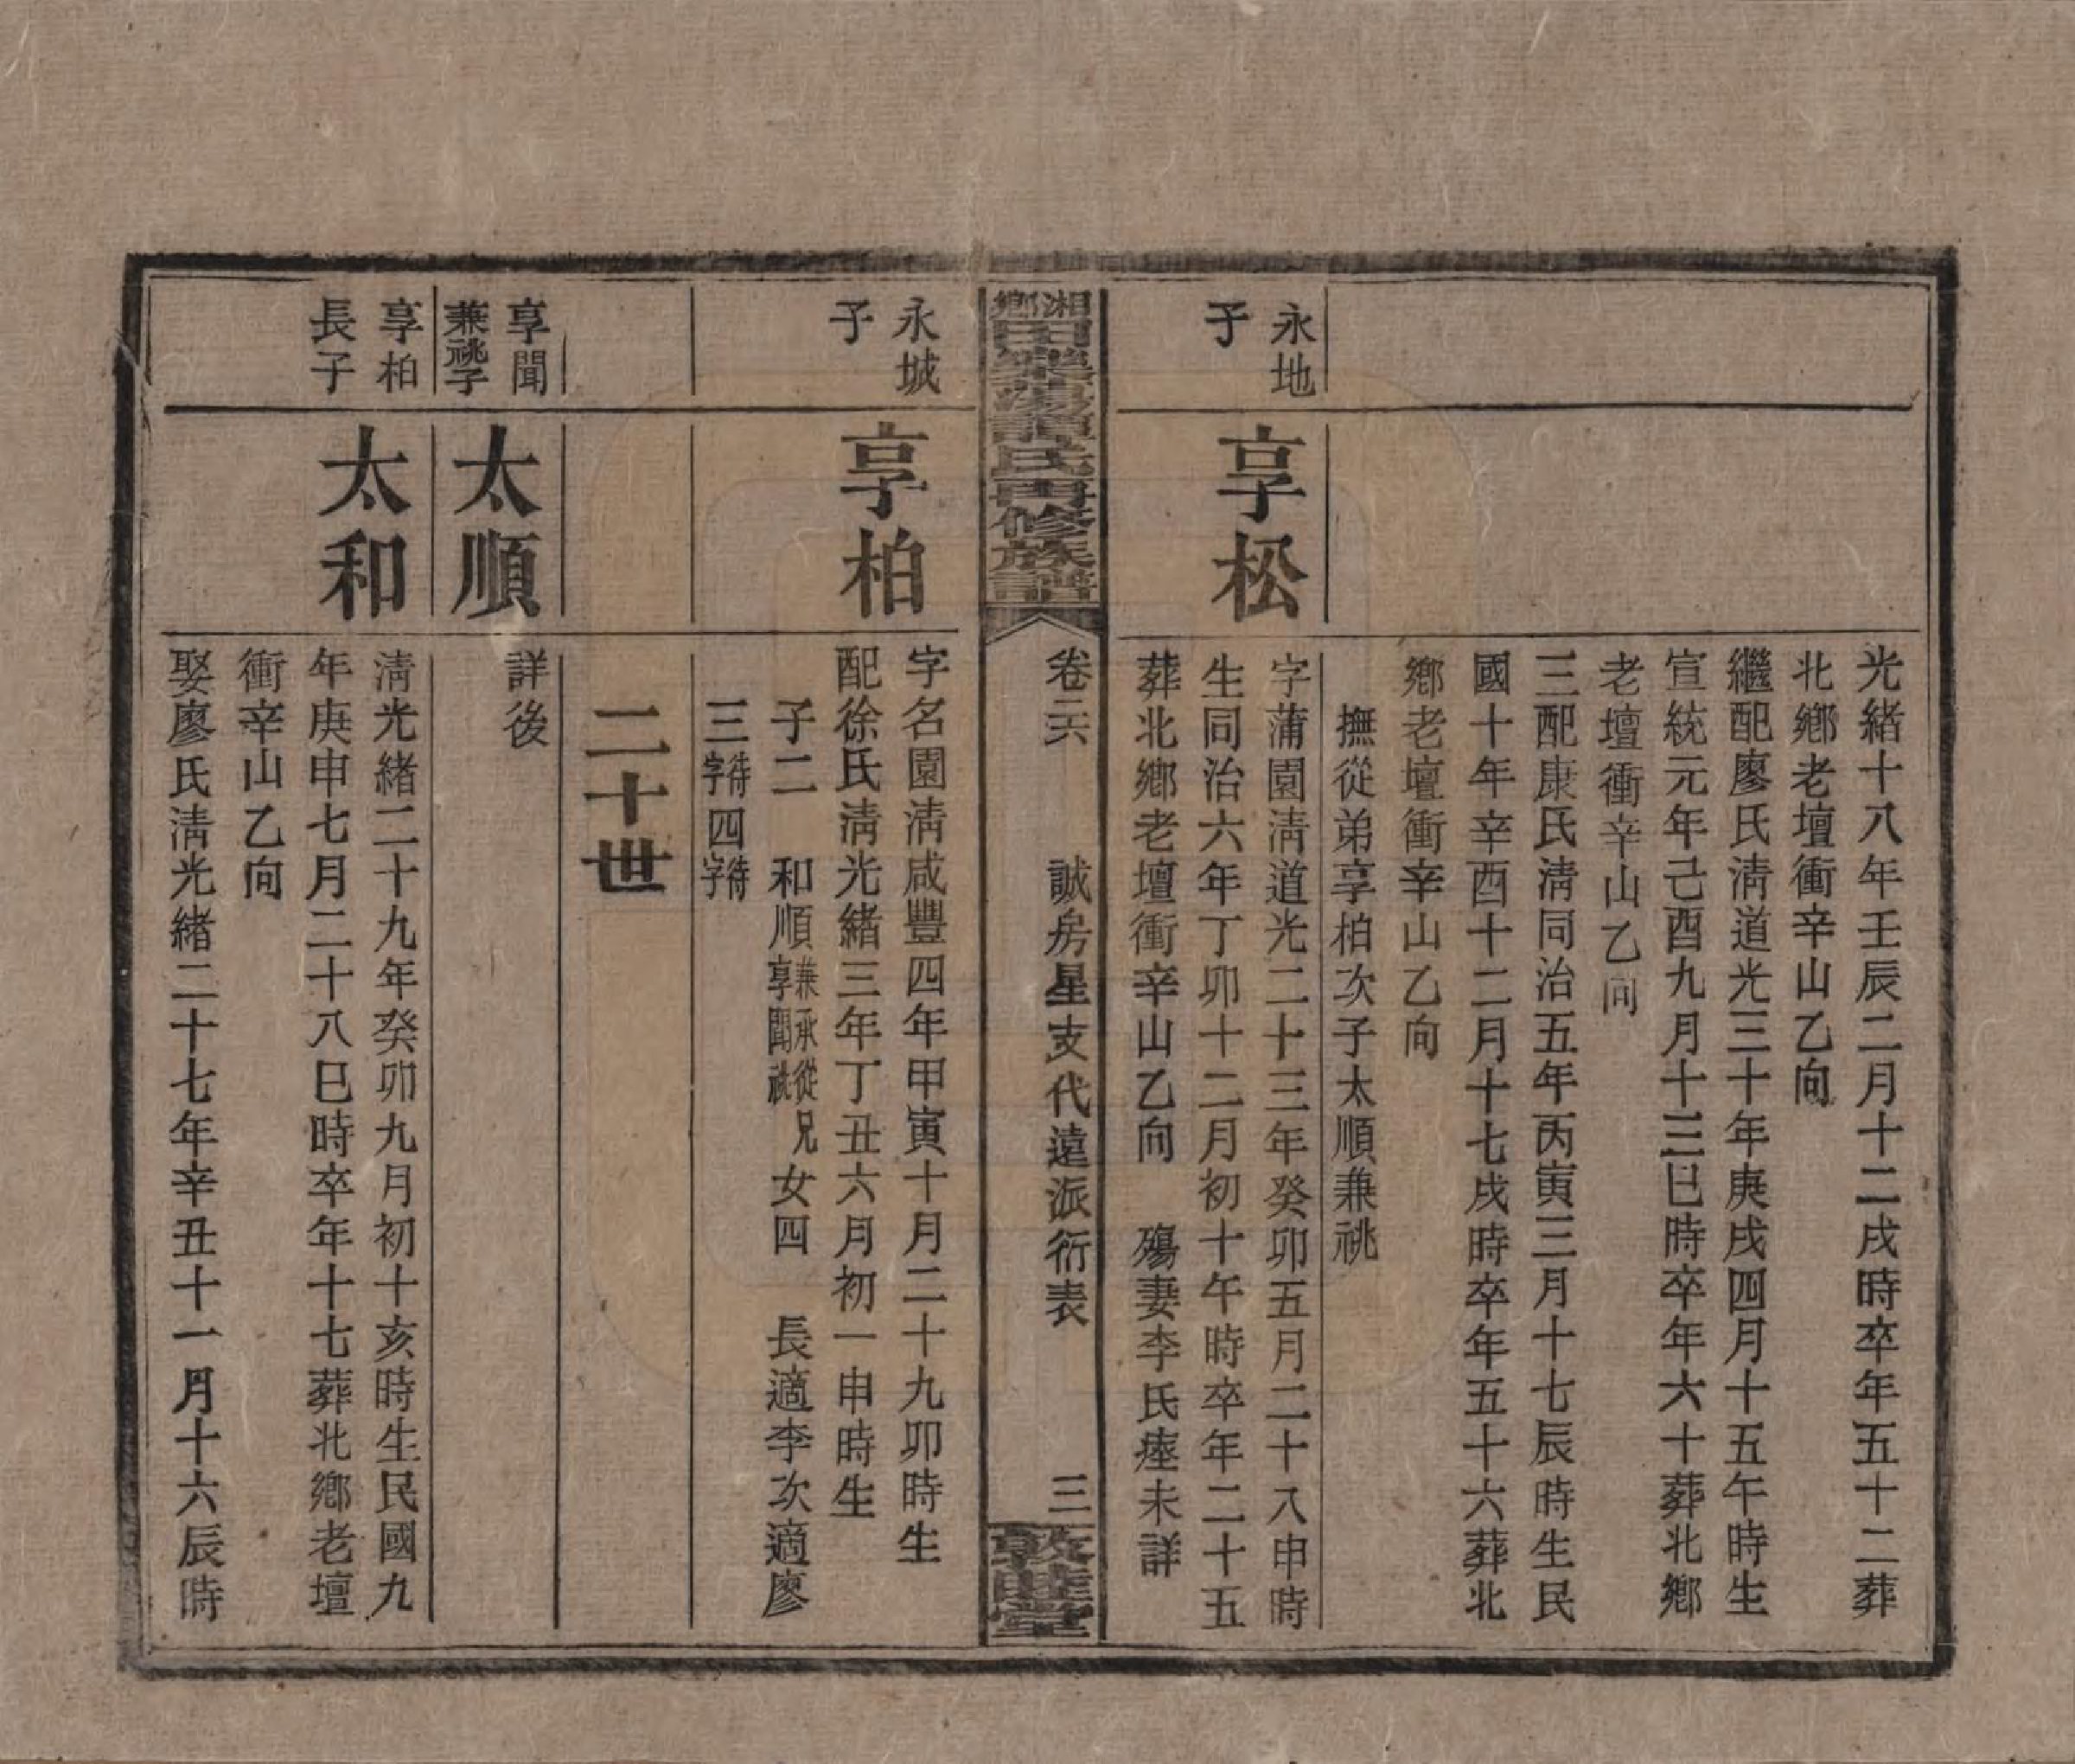 光緒十八年壬辰二月十二戌時卒年五十二葬
北鄉老壇衝辛山乙向
繼配廖氏淸道光三十年庚戌四月十五午時生
宣統元年己酉九月十三巳時卒年六十葬北鄉
老壇衝辛山乙向
三配康氏淸同治五年丙寅三月十七辰時生民
國十年辛酉十二月十七戌時卒年五十六葬北
鄉老壇衝辛山乙向
撫從弟享柏次子太順兼祧
永地
子
享松
字蒲園淸道光二十三年癸卯五月二十八申時
生同治六年丁卯十二月初十午時卒年二十五
葬北鄉老壇衝辛山乙向　殤妻李氏瘞未詳
湘鄉
田樂蕩譚氏四修族譜
卷二六　誠房星支代遠派衍表　三
敦睦堂
永城
子
享柏
字名園淸咸豐四年甲寅十月二十九卯時生
配徐氏淸光緒三年丁丑六月初一申時生
子二　和順兼承從兄享聞祧　女四　長適李次適廖
三待字四待字
二十世
享聞
兼祧子
太順
詳後
享柏
長子
太和
淸光緒二十九年癸卯九月初十亥時生民國九
年庚申七月二十八巳時卒年十七葬北鄉老壇
衝辛山乙向
娶廖氏淸光緒二十七年辛丑十一月十六辰時